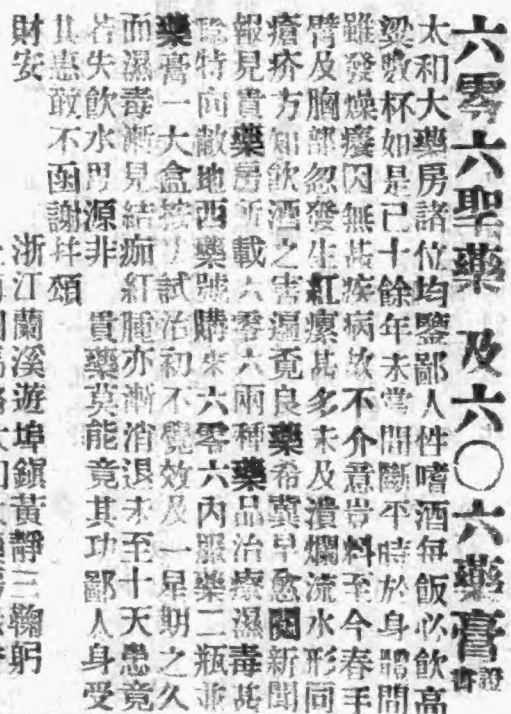 六零六聖藥　及六〇六藥膏證書
太和大藥房諸位均鑒鄙人性嗜酒每飯必飲高
粱數杯如是已十餘年未嘗間斷平時於身體間
雖發燥癢因無甚疾病故不介意豈料至今春手
臂及胸部忽發生紅瘰甚多未及潰爛流水形同
瘡疥方知飲酒之害遍覓良藥希冀早愈閱新聞
報見貴藥房所載六零六兩種藥品治療濕毒甚
特向敝地西藥號購來六零六內服藥二瓶並
藥膏一大盒按法試治初不覺效及一星期之久
而濕毒漸見結痂紅腫亦漸消退未至十天患竟
若失飲水思源非　貴藥莫能竟其功鄙人身受
其惠敢不函謝幷頌
財安
浙江蘭溪遊埠鎮黃靜三鞠躬